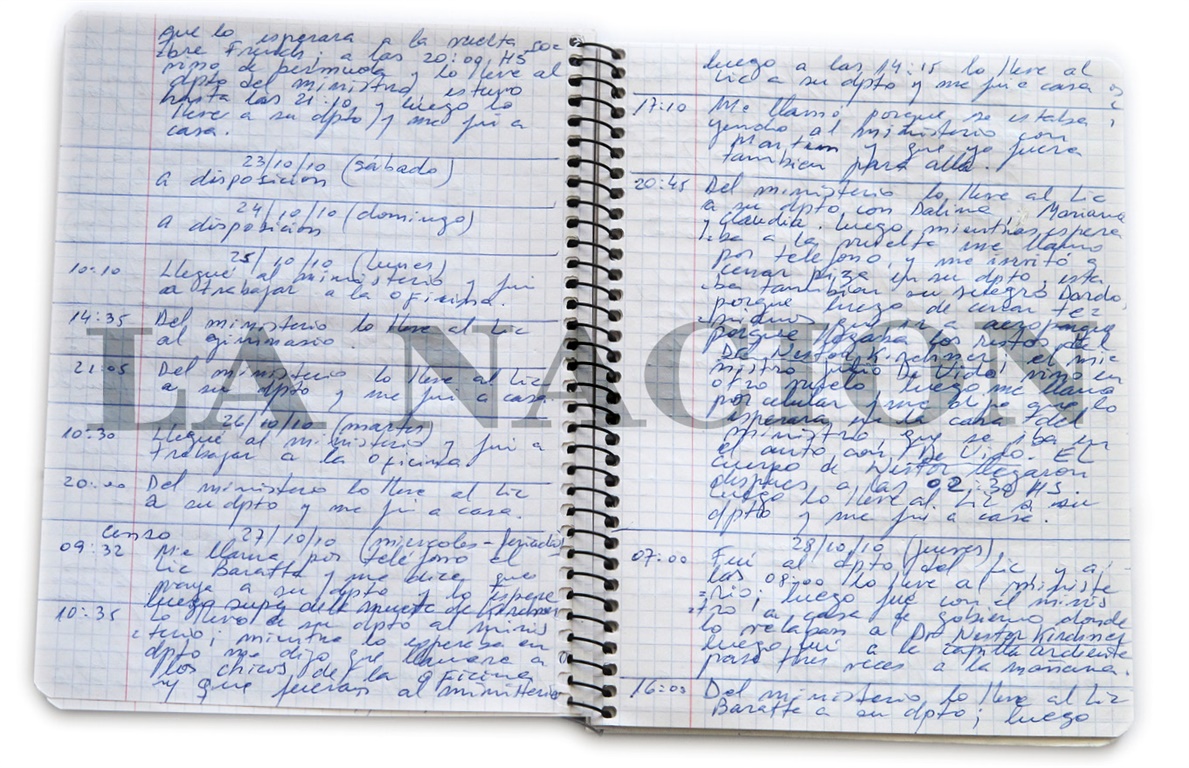 que lo esperara a la vuelta so-
bre French. a las 20:09 HS
vino de peimudo y lo lleve al
dpto del ministro, estuvo
hasta las 21:10 y luego lo
lleve a su dpto y me fui a
casa.
23/10/10 (sábado)
a disposición
24/10/10 (domingo)
a disposición
25/10/10 (lunes)
10:10 Llegué al ministerio y fui
a trabajar a la oficina.
14:35 Del ministerio lo lleve al Lic
al gimnasio.
21:05 Del ministerio lo lleve al Lic
a su dpto y me fui a casa
26/10/10 (martes)
10:30 Llegué al ministerio y fui a
trabajar a la oficina
20:00 Del ministerio lo lleve al Lic
a su dpto y me fui a casa.
censo 27/10/10 (miercoles-feriado)
09:32 Me llama por teléfono el
Lic Baratta y me dice que
vaya a su dpto y lo espere
luego supe de la muerte de Kirchner
10:35 lo llevo de su dpto al minis
=terio; mientras lo esperaba en
dpto me dijo que llamara a
los chicos de la oficina
y que fueran al ministerio
luego a las 14:15 lo lleve al
Lic a su dpto y me fui e casa
17:10 Me llamo porque se estaba
yendo al ministerio con
Martin y que yo fuera
tambien para alla.
20:45 Del ministerio lo lleve al Lic
a su dpto con Dalina, Mariana
y Claudia. luego mientras espera
=ba a la vuelta me llamo
por telefono, y me invitó a
cenar piza en su dpto, esta
=ba tambien su suegro Dardo,
porque luego de cenar
fueron a aeroparque
porque llegaba los restos del
Dr Nestor Kirchner; el mi
nistro Julio De Vido, vino en
otro vuelo luego me llamo
por celular y me dijo que lo
esperara en la casa del
ministro que se iba en
el auto con De Vido. El
cuerpo de Nestor llegaron
despues a las 02:30 HS
luego lo lleve al Lic a su
dpto y me fui a casa.
28/10/10 (jueves)
07:00 Fui al dpto del Lic y a
las 08:00 lo lleve a ministe
=rio; luego fue con el minis
=tro a casa de gobierno donde
lo velaban al Dr Nestor Kirchner
luego fui a la capilla ardiente
paso tres veces a la mañana.
16:00 Del ministerio lo lleve al Lic
Baratta a su dpto; luego
LA NACION